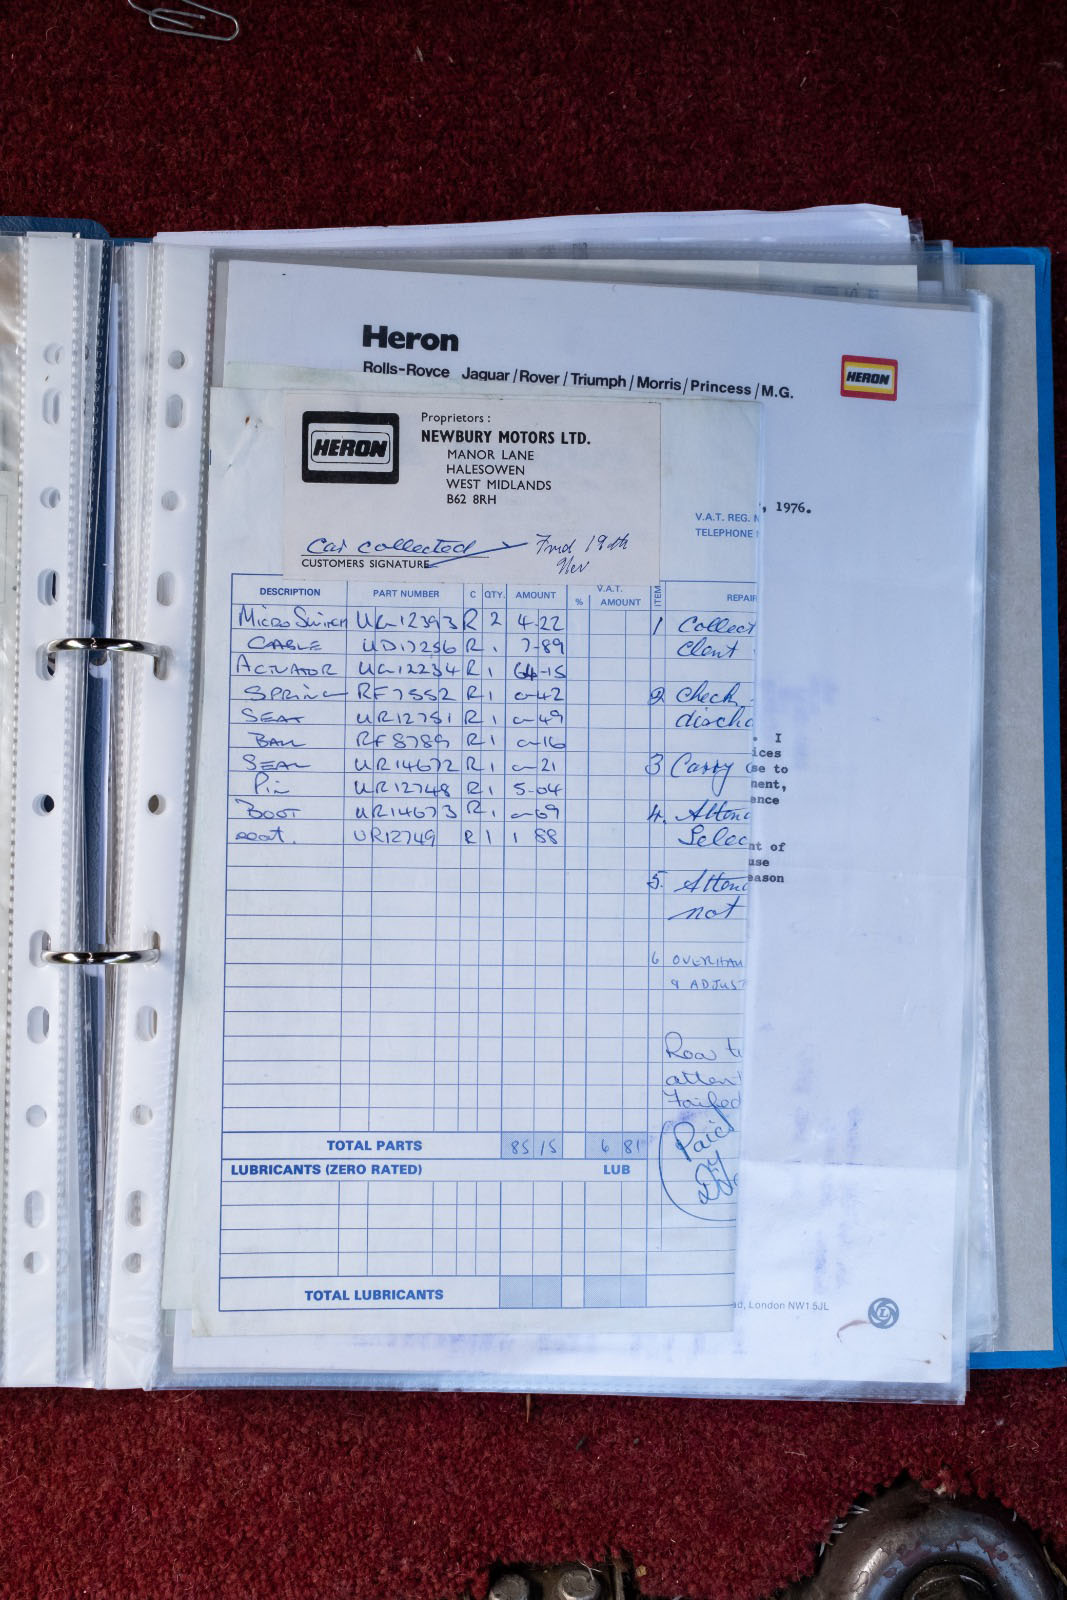 Heron
Rolls-Royce Jaguar/Rover/Triumph/Morris/Princess/M.G.
HERON
HERON
Proprietors :
NEWBURY MOTORS LTD.
MANOR LANE
HALESOWEN
WEST MIDLANDS
B62 8RH
, 1976.
V.A.T. REG. N
TELEPHONE
Car collected Fri 19th
Nov
CUSTOMERS SIGNATURE
DESCRIPTION PART NUMBER C QTY. AMOUNT % V.A.T. AMOUNT ITEM REPAIR
Micro Switch UR12393 R 2 4-22
CABLE UD17256 R 1 7-89
ACTUATOR UR12234 R 1 64-15
SPRING RF7552 R 1 0-42
SEAT UR12751 R 1 0-49
BALL RF8789 R 1 0-16
SEAL UR14672 R 1 0-21
Pin UR12748 R 1 5-04
BOOT UR14673 R 1 0-69
seat. UR12749 R 1 1 88
1 Collect
Client
2 Check
discha
3 Carry
4. Atten
Selec
5. Atten
not
6 OVERHAU
& ADJUST
Road te
atten
Failed
Paid
. I
ices
se to
ment,
ence
nt of
use
eason
TOTAL PARTS 85 15 6 81
LUBRICANTS (ZERO RATED) LUB
TOTAL LUBRICANTS
ad, London NW1 5JL
L